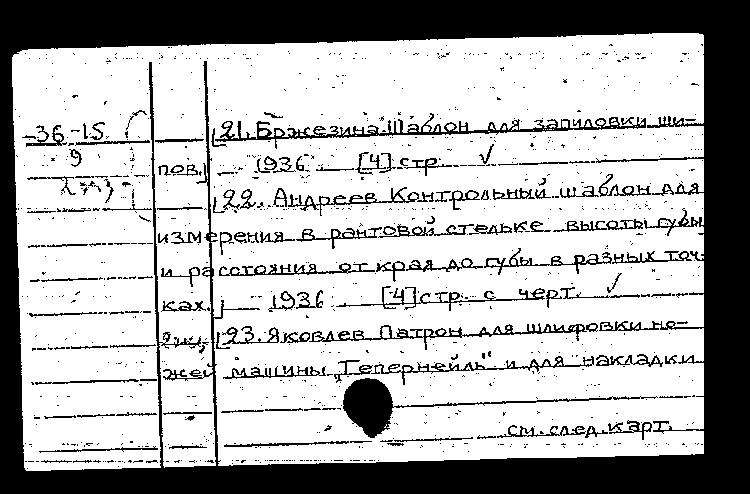 36-15 [21. Бржезина. Шаблон для запиловки ши-
9 пов.] 1936 [4] стр. ✓
[22. Андреев Контрольный шаблон для
измерения в рантовой стельке высоты губы
и расстояния от края до губы в разных точ-
ках.] 1936 [4] стр. с черт. ✓
[23. Яковлев Патрон для шлифовки но-
жей машины "Гепернейль" и для накладки
см. след. карт.